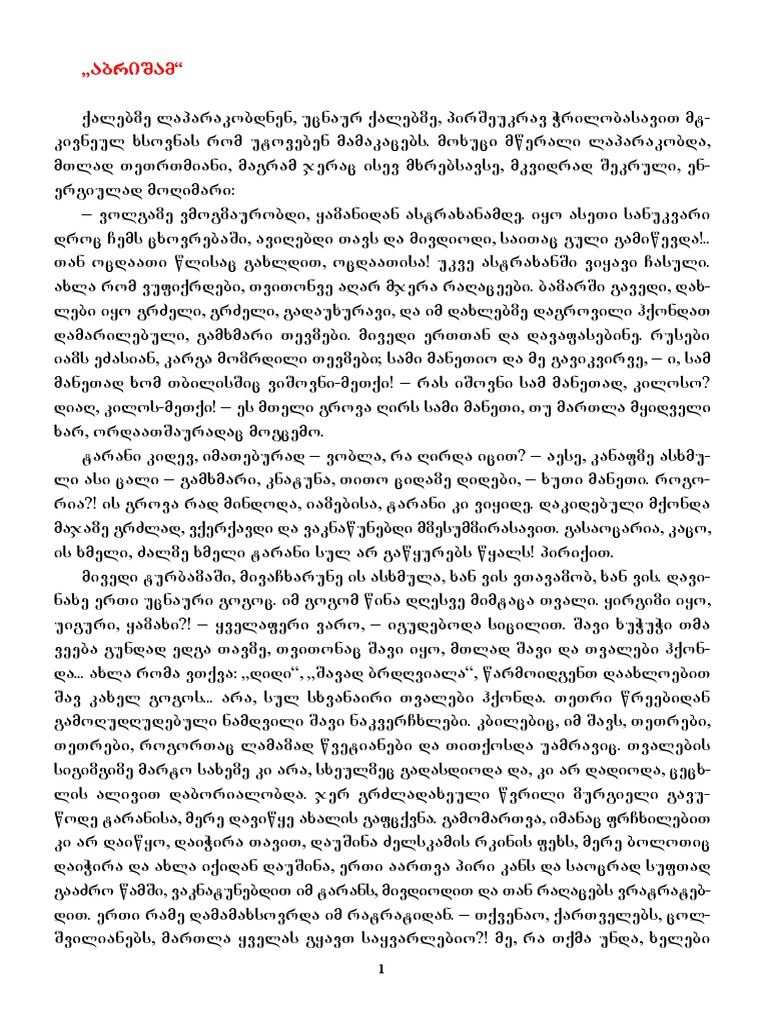 „აბრიშამ“
ქალებზე ლაპარაკობდნენ, უცნაურ ქალებზე, პირშეუკრავ ჭრილობასავით მტ-
კივნეულ ხსოვნას რომ უტოვებენ მამაკაცებს. მოხუცი მწერალი ლაპარაკობდა,
მთლად თეთრთმიანი, მაგრამ ჯერაც ისევ მხრებსავსე, მკვიდრად შეკრული, ენ-
ერგიულად მოღიმარი:
– ვოლგაზე ვმოგზაურობდი, ყაზანიდან ასტრახანამდე. იყო ასეთი სანუკვარი
დროც ჩემს ცხოვრებაში, ავიღებდი თავს და მივდიოდი, საითაც გული გამიწევდა!..
თან ოცდაათი წლისაც გახლდით, ოცდაათისა! უკვე ასტრახანში ვიყავი ჩასული.
ახლა რომ ვუფიქრდები, თვითონვე აღარ მჯერა რაღაცეები. ბაზარში გავედი, დახ-
ლები იყო გრძელი, გრძელი, გადაუხურავი, და იმ დახლებზე დაგროვილი ჰქონდათ
დამარილებული, გამხმარი თევზები. მივედი ერთთან და დავაფასებინე. რუსები
იაზს ეძასიან, კარგა მოზრდილი თევზები; სამი მანეთიო და მე გავიკვირვე, – ი, სამ
მანეთად ხომ თბილისშიც ვიშოვნი-მეთქი! – რას იშოვნი სამ მანეთად, კილოსო?
დიაღ, კილოს-მეთქი! – ეს მთელი გროვა ღირს სამი მანეთი, თუ მართლა მყიდველი
ხარ, ორდაათშაურადაც მოგცემო.
ტარანი კიდევ, იმათებურად – ვობლა, რა ღირდა იცით? – აესე, კანაფზე ასხმუ-
ლი ასი ცალი – გამხმარი, კნატუნა, თითო ციდაზე დიდები, – ხუთი მანეთი. როგო-
რია?! ის გროვა რად მინდოდა, იაზებისა, ტარანი კი ვიყიდე. დაკიდებული მქონდა
მაჯაზე გრძლად, ვქერქავდი და ვაკნაწუნებდი მზესუმზირასავით. გასაოცარია, კაცო,
ის ხმელი, ძალზე ხმელი ტარანი სულ არ გაწყურებს წყალს! პირიქით.
მივედი ტურბაზაში, მივაჩხარუნე ის ასხმულა, ხან ვის ვთავაზობ, ხან ვის. დავი-
ნახე ერთი უცნაური გოგოც. იმ გოგომ წინა დღესვე მიმტაცა თვალი. ყირგიზი იყო,
უიგური, ყაზახი?! – ყველაფერი ვარო, – იგუდებოდა სიცილით. შავი ხუჭუჭი თმა
ვეება გუნდად ედგა თავზე, თვითონაც შავი იყო, მთლად შავი და თვალები ჰქონ-
და... ახლა რომა ვთქვა: „დიდი“, „შავად ბრდღვიალა“, წარმოიდგენთ დაახლოებით
შავ კახელ გოგოს... არა, სულ სხვანაირი თვალები ჰქონდა. თეთრი წრეებიდან
გამოღუდღუდებული ნამდვილი შავი ნაკვერჩხლები. კბილებიც, იმ შავს, თეთრები,
თეთრები, როგორთაც ლამაზად წვეტიანები და თითქოსდა უამრავიც. თვალების
სიგიზგიზე მარტო სახეზე კი არა, სხეულზეც გადასდიოდა და, კი არ დადიოდა, ცეცხ-
ლის ალივით დაბორიალობდა. ჯერ გრძლადახეული წვრილი ზურგიელი გავუ-
წოდე ტარანისა, მერე დავიწყე ახალის გაფცქვნა. გამომართვა, იმანაც ფრჩხილებით
კი არ დაიწყო, დაიჭირა თავით, დაუშინა ძელსკამის რკინის ფეხს, მერე ბოლოთიც
დაიჭირა და ახლა იქიდან დაუშინა, ერთი აართვა პირი კანს და საოცრად სუფთად
გააძრო წამში, ვაკნატუნებდით იმ ტარანს, მივდიოდით და თან რაღაცებს ვრატრატებ-
დით. ერთი რამე დამამახსოვრდა იმ რატრატიდან. – თქვენაო, ქართველებს, ცოლ-
შვილიანებს, მართლა ყველას გყავთ საყვარლებიო?! მე, რა თქმა უნდა, ხელები
1